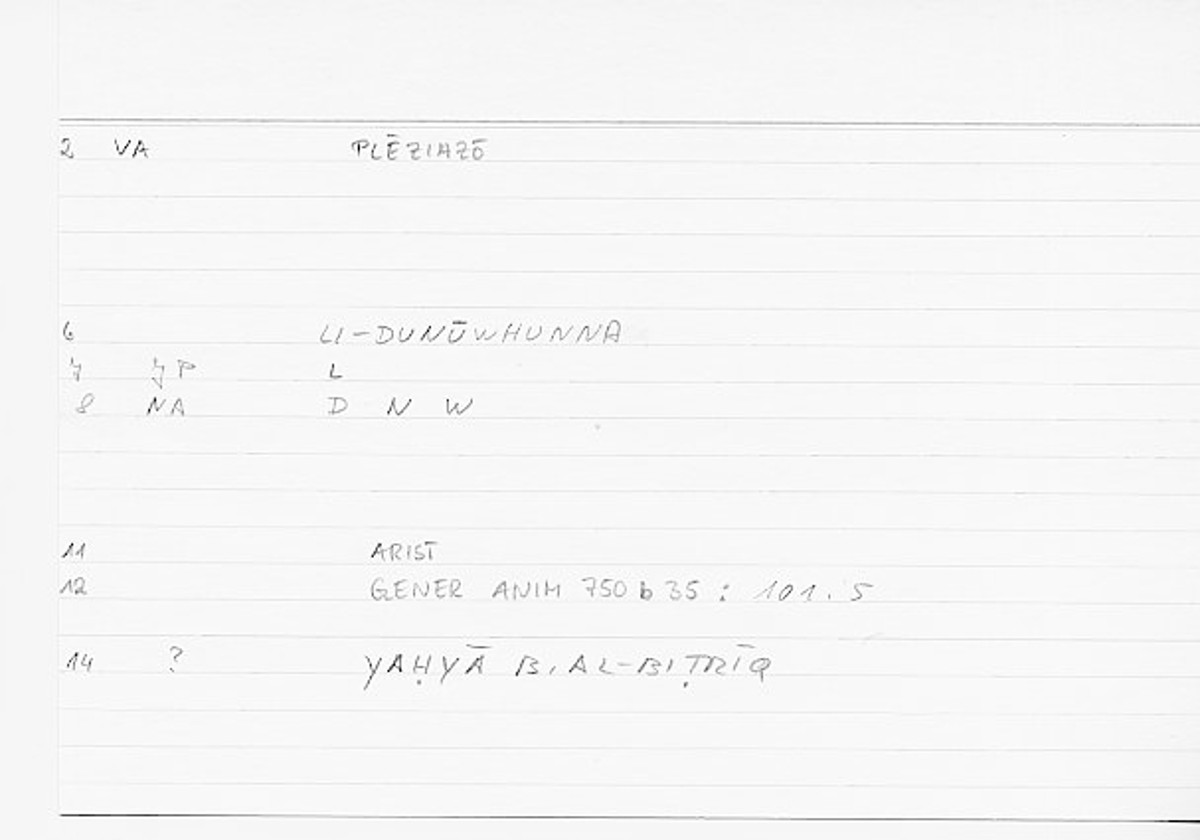 2 VA PLĒZIAZŌ
6 LI-DUNŪWHUNNA
7 JP L
8 NA D N W
11 ARIST
12 GENER ANIM 750 b 35 : 101.5
14 ? YAḤYĀ B. AL-BIṬRĪQ